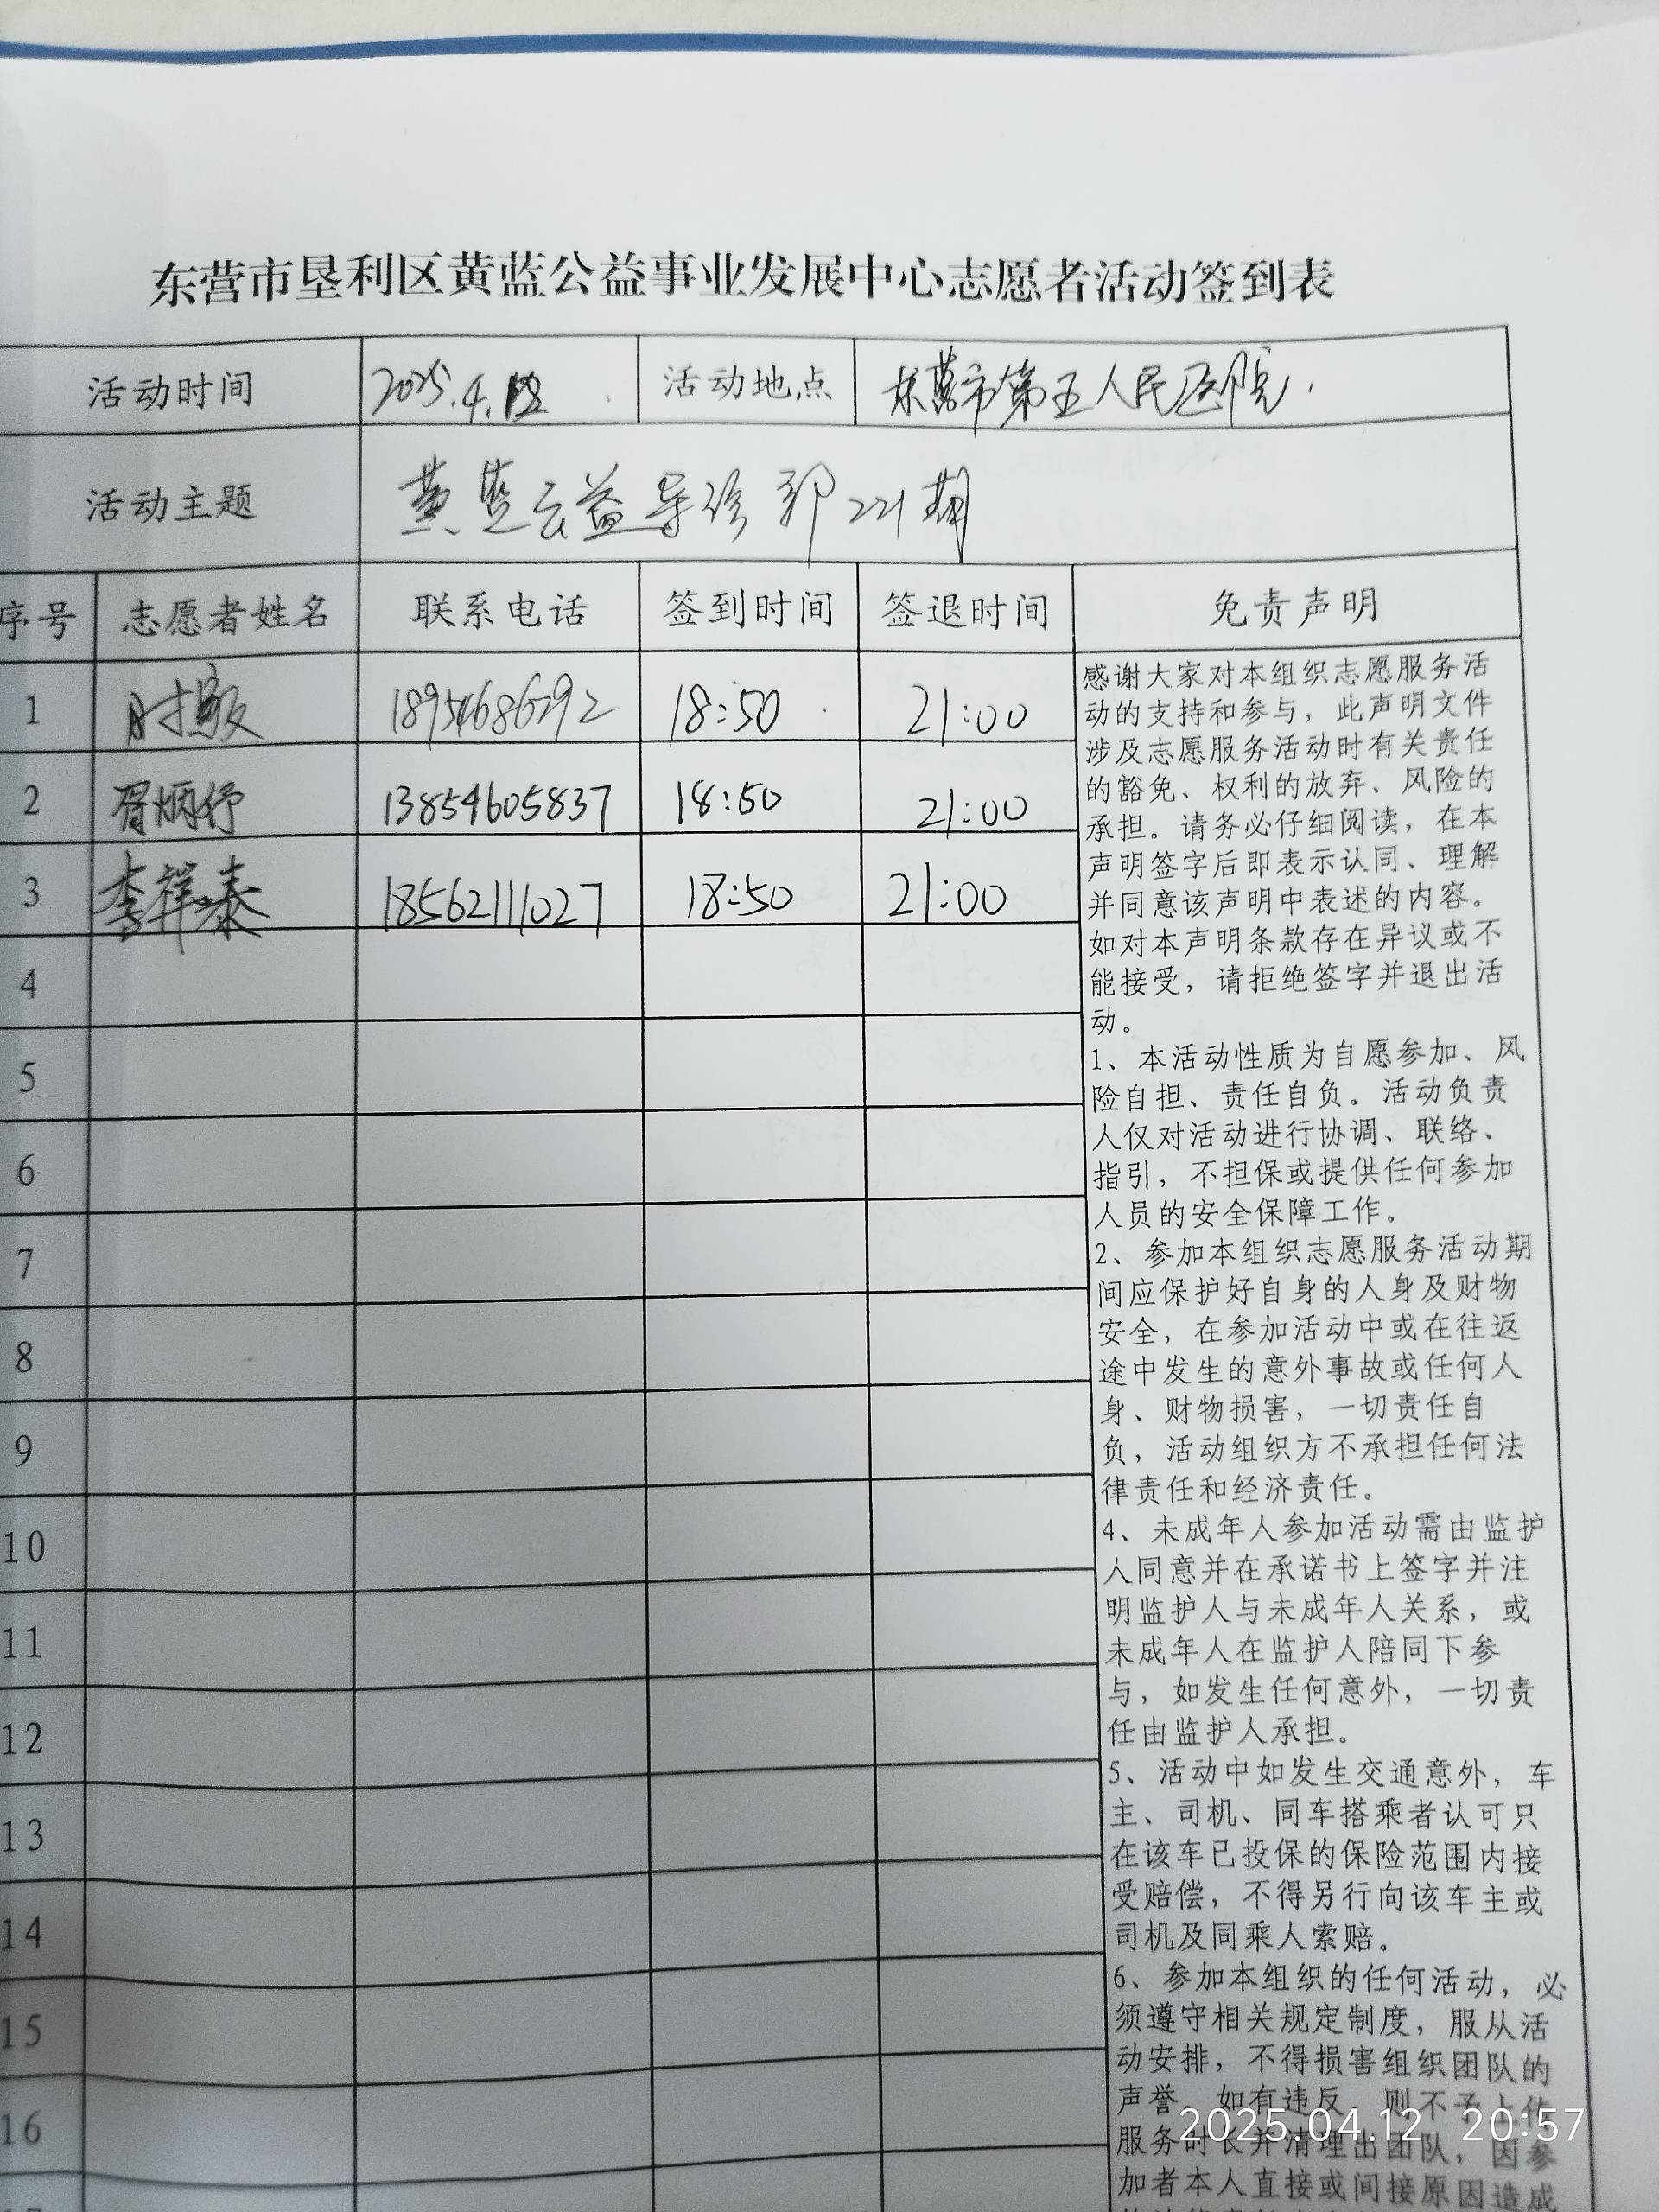 东营市垦利区黄蓝公益事业发展中心志愿者活动签到表
活动时间 2025.4.12 活动地点 东营市第五人民医院.
活动主题 黄蓝公益导诊部221期
序号 志愿者姓名 联系电话 签到时间 签退时间 免责声明
1 时敏 18954686292 18:50 21:00
2 胥炳伃 13854605837 18:50 21:00
3 李祥泰 18562111027 18:50 21:00
4
5
6
7
8
9
10
11
12
13
14
15
16
17
感谢大家对本组织志愿服务活
动的支持和参与，此声明文件
涉及志愿服务活动时有关责任
的豁免、权利的放弃、风险的
承担。请务必仔细阅读，在本
声明签字后即表示认同、理解
并同意该声明中表述的内容。
如对本声明条款存在异议或不
能接受，请拒绝签字并退出活
动。
1、本活动性质为自愿参加、风
险自担、责任自负。活动负责
人仅对活动进行协调、联络、
指引，不担保或提供任何参加
人员的安全保障工作。
2、参加本组织志愿服务活动期
间应保护好自身的人身及财物
安全，在参加活动中或在往返
途中发生的意外事故或任何人
身、财物损害，一切责任自
负，活动组织方不承担任何法
律责任和经济责任。
4、未成年人参加活动需由监护
人同意并在承诺书上签字并注
明监护人与未成年人关系，或
未成年人在监护人陪同下参
与，如发生任何意外，一切责
任由监护人承担。
5、活动中如发生交通意外，车
主、司机、同车搭乘者认可只
在该车已投保的保险范围内接
受赔偿，不得另行向该车主或
司机及同乘人索赔。
6、参加本组织的任何活动，必
须遵守相关规定制度，服从活
动安排，不得损害组织团队的
声誉。如有违反，则不予上传
服务时长并清理出团队，因参
加者本人直接或间接原因造成
2025.04.12 20:57